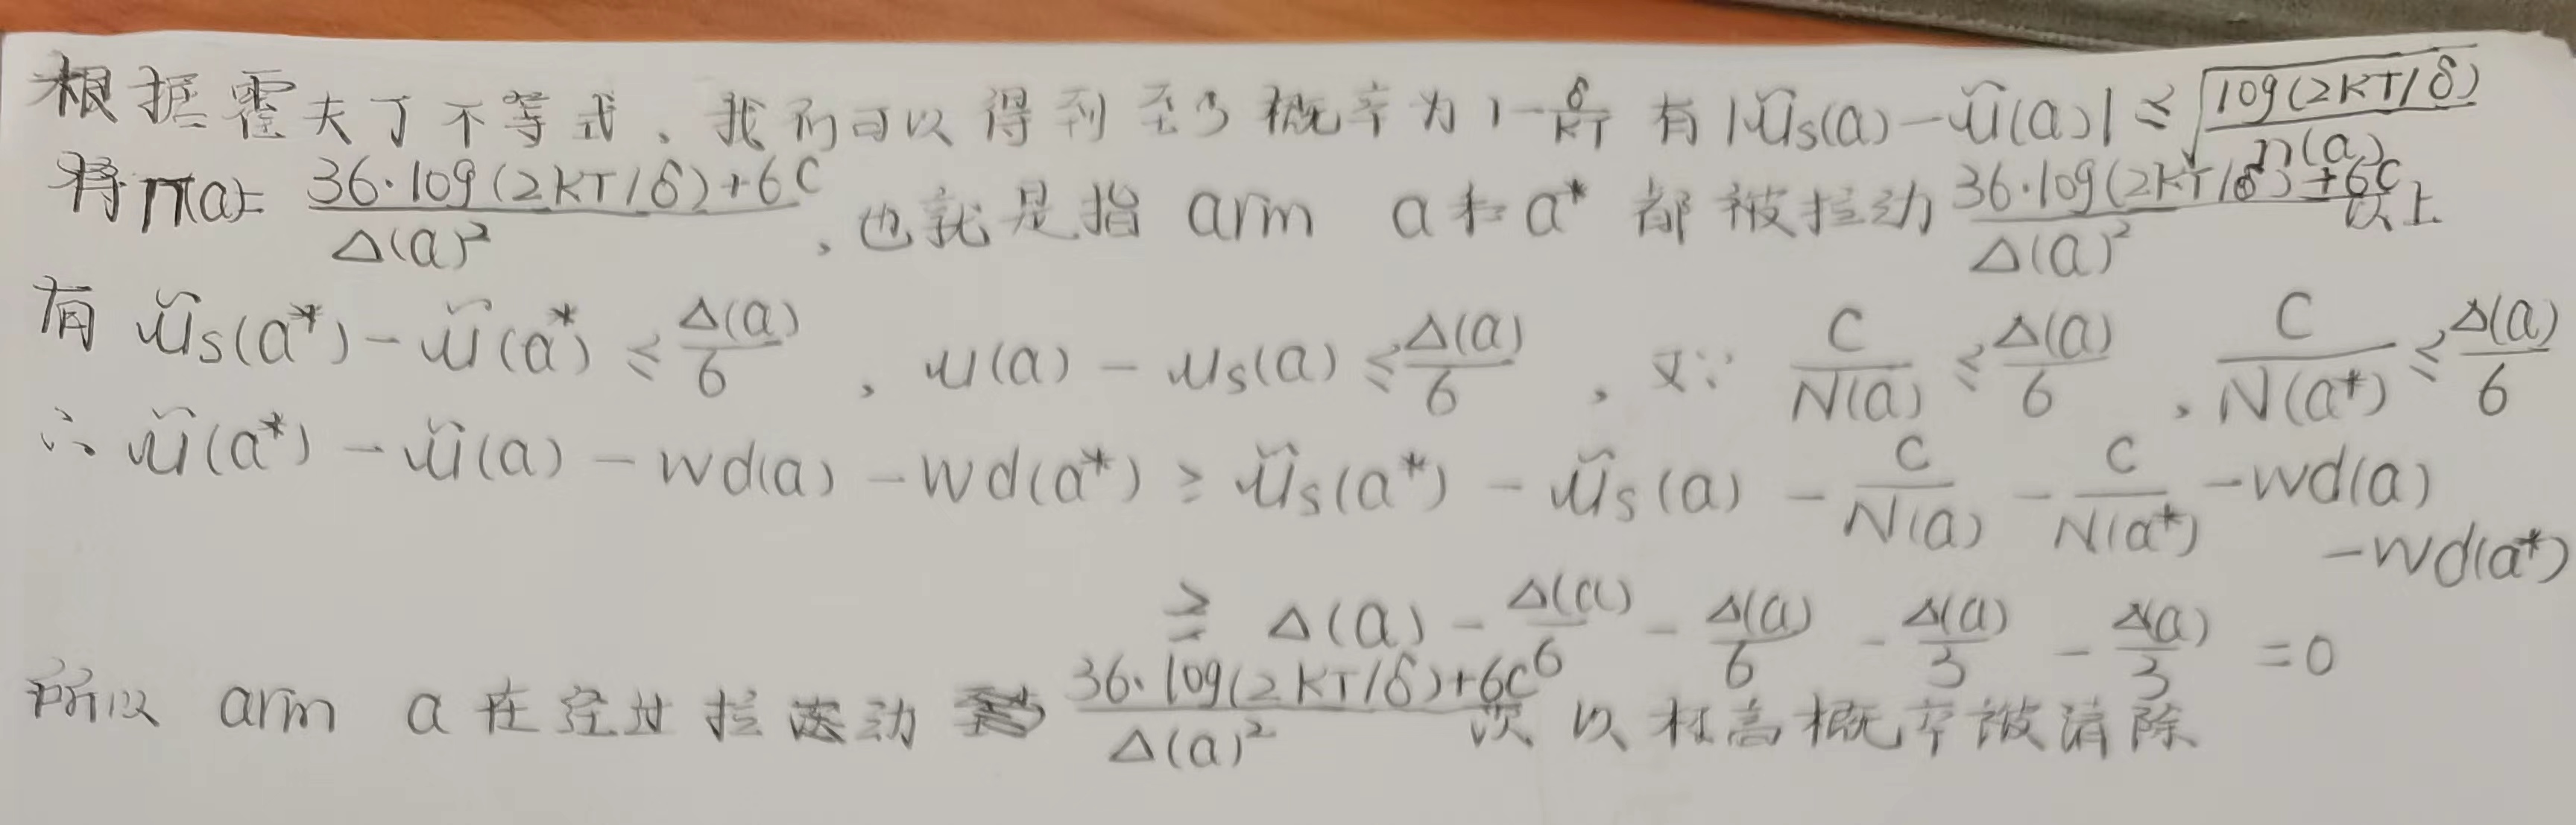 根据霍夫丁不等式、我们可以得到至少概率为 1-δ/KT 有 |ũs(a)-ũ(a)| ≤ √(log(2KT/δ)/n(a))
将n(a)= (36·log(2KT/δ)+6C)/Δ(a)², 也就是指 arm a和a* 都被拉动 (36·log(2KT/δ)+6C)/Δ(a)² 以上
有 ũs(a*)-ũ(a*) ≤ Δ(a)/6, u(a)-us(a) ≤ Δ(a)/6, 又∵ C/N(a) ≤ Δ(a)/6, C/N(a*) ≤ Δ(a)/6
∴ ũ(a*)-ũ(a)-wd(a)-wd(a*) ≥ ũs(a*)-ũs(a)-C/N(a)-C/N(a*)-wd(a)
-wd(a*)
≥ Δ(a)-Δ(a)/6-Δ(a)/6-Δ(a)/3-Δ(a)/3 =0
所以 arm a 在经过拉动 (36·log(2KT/δ)+6C)/Δ(a)² 次 以极高概率被消除